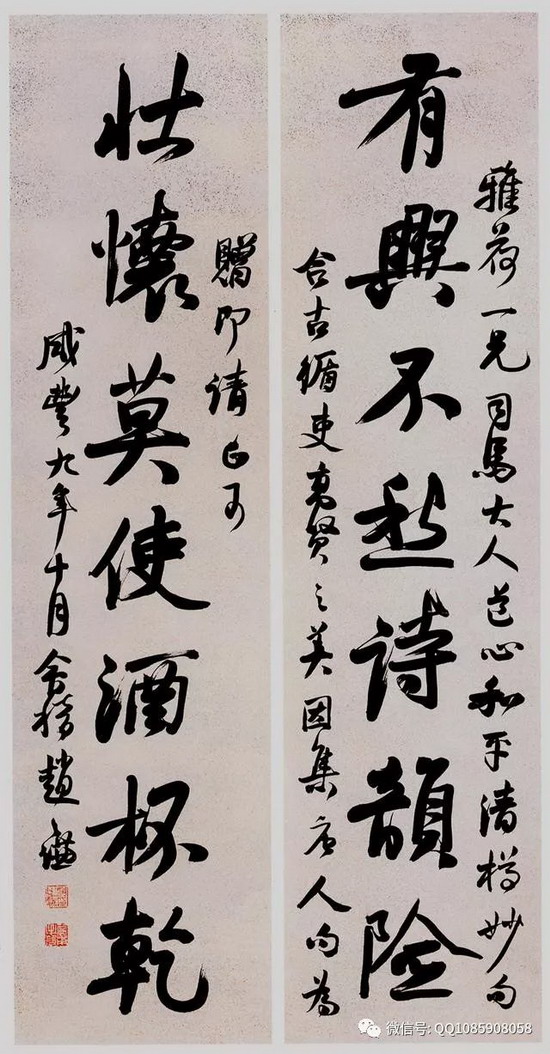 雅荷一兄司馬大人心和平清樽妙句
有興不愁詩韻險
合古循吏高賢之美因集唐人句為
贈即請正可
壯懷莫使酒杯乾
咸豐九年十月會稽趙
微信号: QQ1085908058